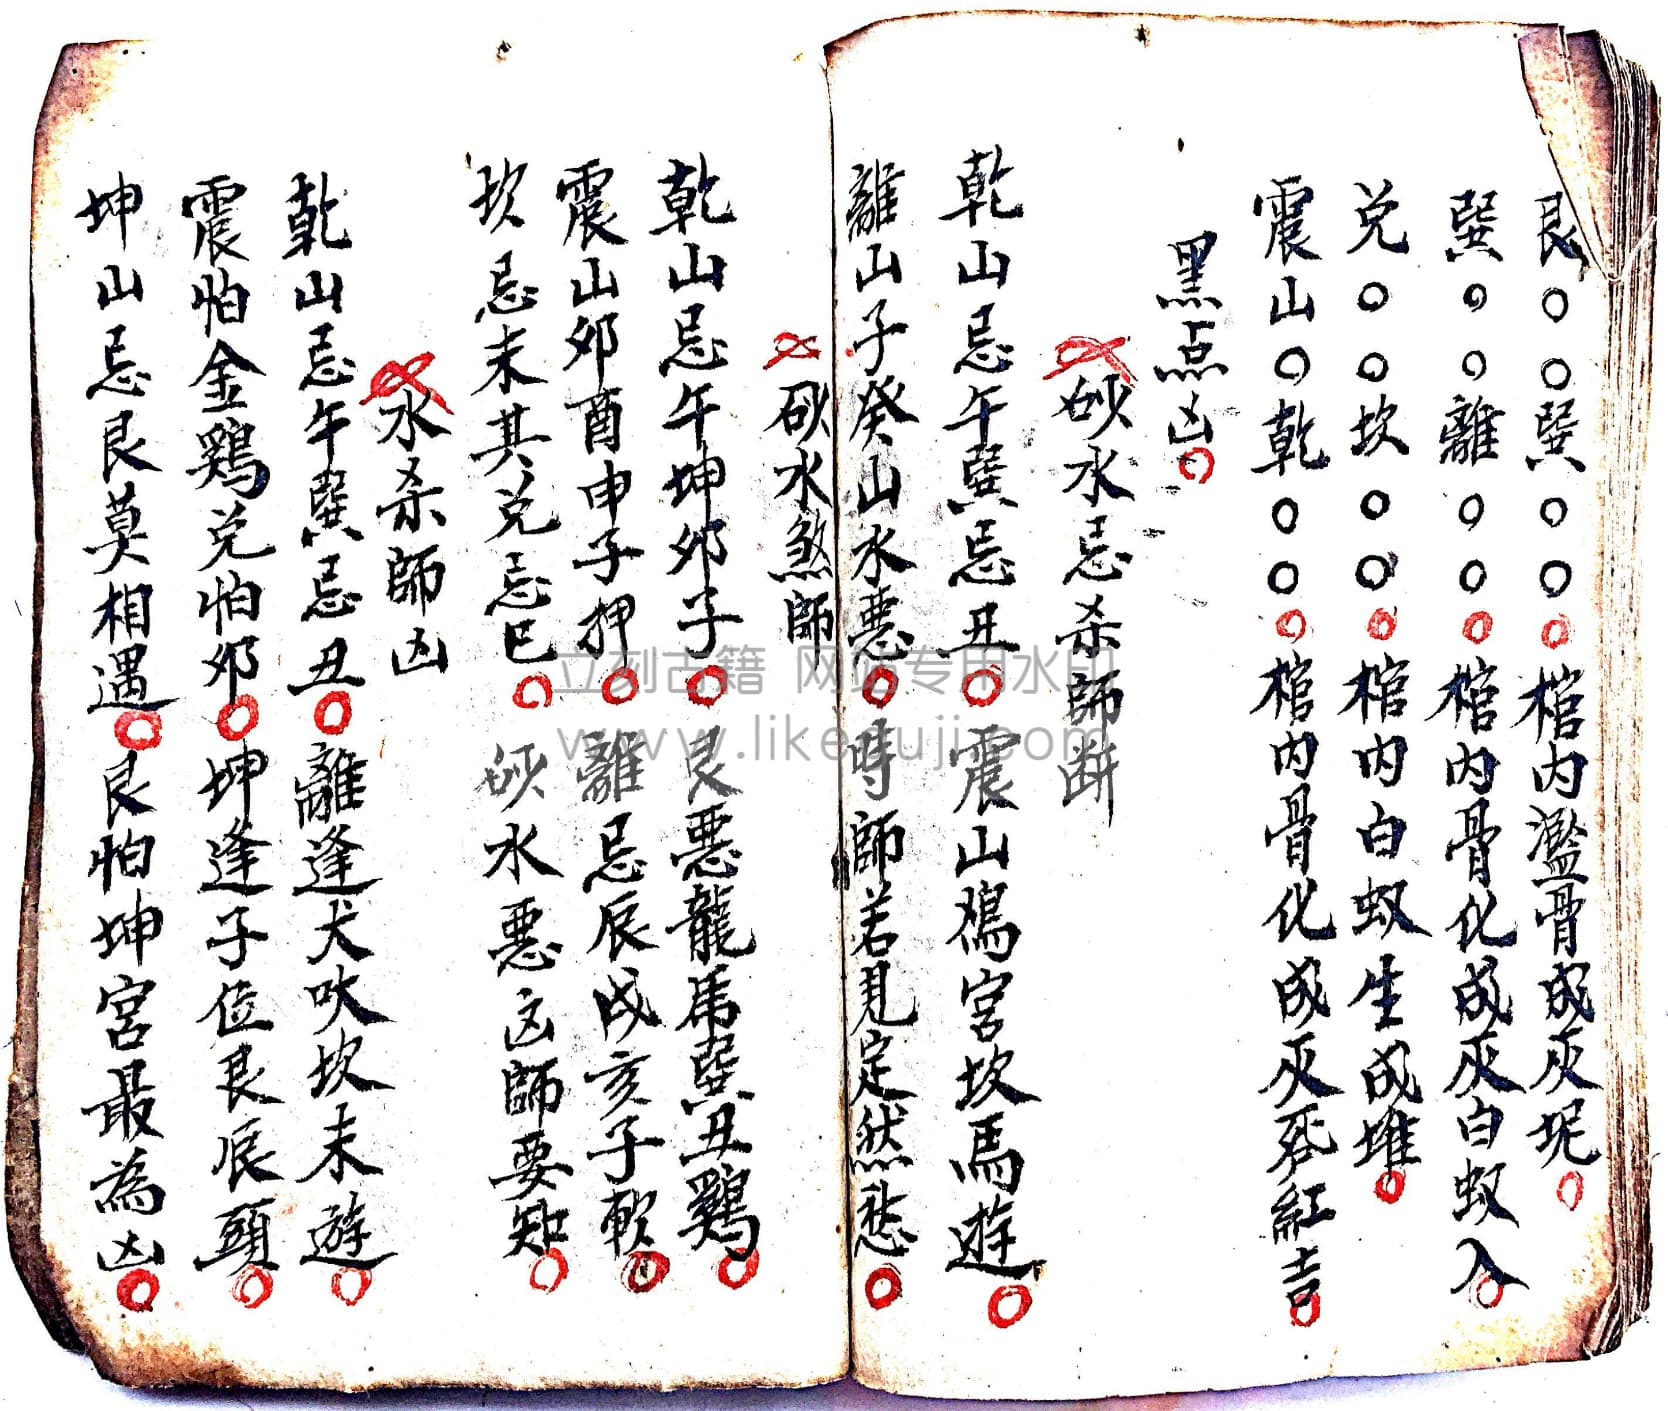 艮○○巽○○○棺内濫骨成灰坭○
巽○○離○○○棺内骨化成灰白蚁入○
兑○○坎○○○棺内白蚁生成堆○
震山○乾○○○棺内骨化成灰死紅吉○
黑点凶○
砂水忌杀師断
乾山忌午巽忌丑○震山鳮宮坎馬遊○
離山子癸山水悪○時師若見定然愁○
砂水煞師
乾山忌午坤卯子○艮悪龍馬巽丑鷄○
震山卯酉申子押○離忌辰戌亥子軟○
坎忌未其兑忌巳○砂水悪凶師要知○
水杀師凶
乾山忌午巽忌丑○離逢犬吠坎未遊○
震怕金鷄兑怕卯○坤逢子位艮辰頭○
坤山忌艮莫相遇○艮怕坤宮最為凶○
立刻古籍 网站专用水印
www.likeguji.com